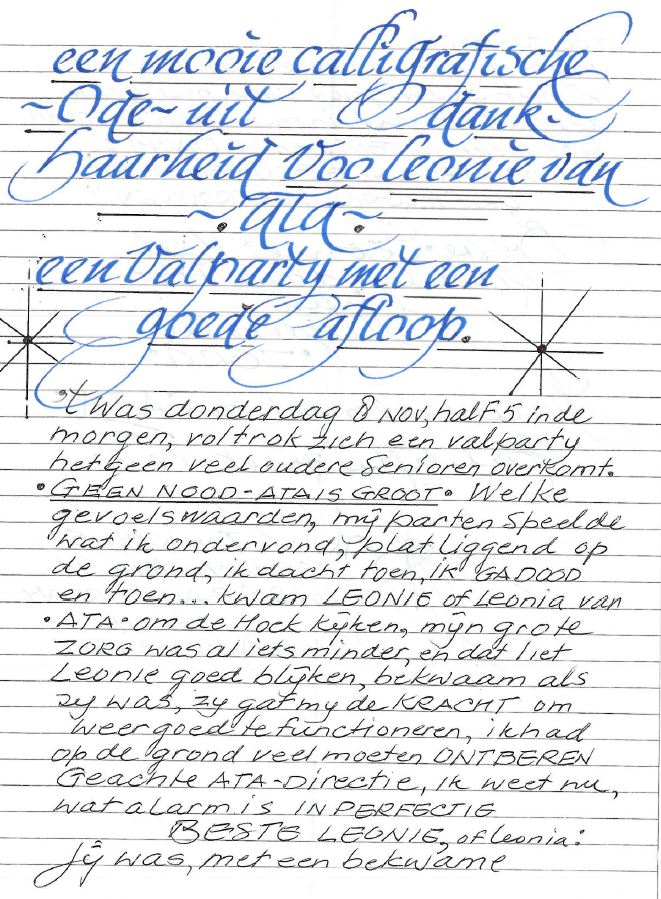 een mooie calligrafische
~Ode~ uit dank-
baarheid Voo leonie van
~.ata.~
een Valparty met een
goede afloop.
't Was donderdag 8 NOV, half 5 in de
morgen, voltrok zich een valparty
het geen veel oudere Senioren overkomt.
• GEEN NOOD - ATA IS GROOT • Welke
gevoelswaarden, mijn parten Speelde
wat ik ondervond, plat liggend op
de grond, ik dacht toen, IK GA DOOD
en toen... kwam LEONIE of Leonia van
• ATA • om de Hoek kijken, mijn grote
ZORG was al iets minder, en dat liet
Leonie goed blijken, bekwaam als
zij was, zij gaf mij de KRACHT om
weer goed te functioneren, ik had
op de grond veel moeten ONTBEREN
Geachte ATA-Directie, ik weet nu,
wat alarm is IN PERFECTIE
BESTE LEONIE, of leonia:
Jij was, met een bekwame